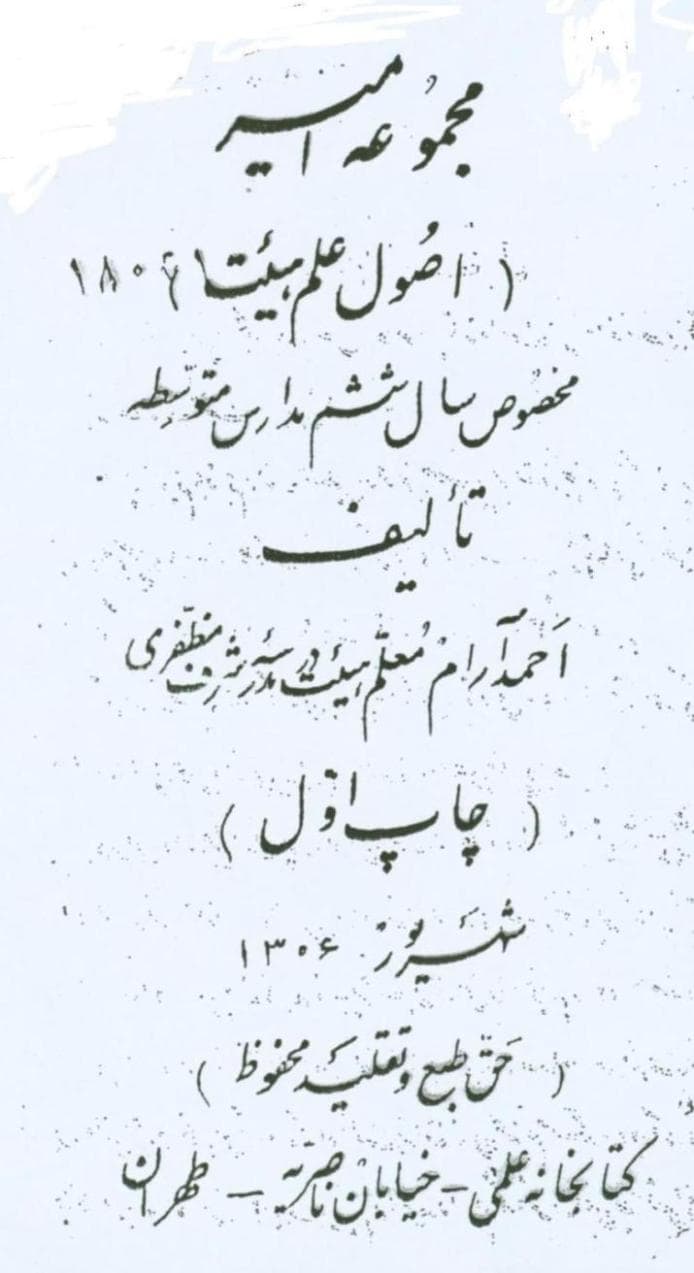 مجموعه امیر
( اصول علم هیئت ) ۱۸۰
مخصوص سال ششم مدارس متوسطه
تألیف
احمد آرام معلّم هیئت در مدرسه شرف مظفّری
( چاپ اوّل )
شهریور ۱۳۰۶
( حَقّ طبع و تقلید محفوظ )
کتابخانه علمی - خیابان ناصریه - طهران